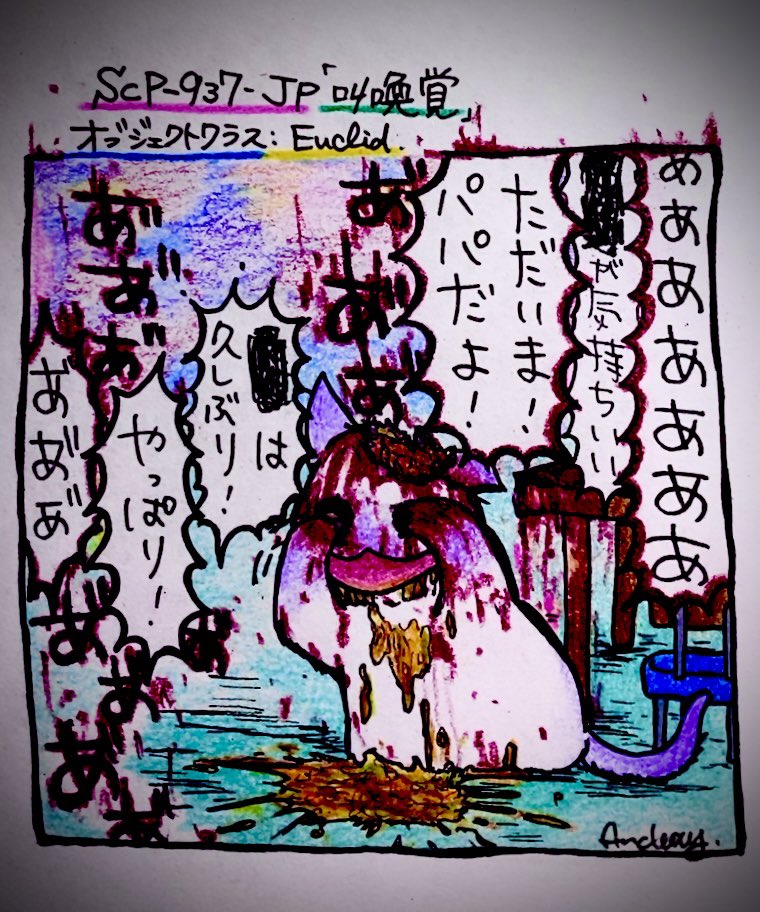 SCP-937-JP「叫喚覚」
オブジェクトクラス: Euclid.
ああああああああ
が気持ちいい
ただいま!
パパだよ!
あ゛あ゛あ゛
は
久しぶり!
あ゛あ゛あ゛
やっぱり!
あ゛あ゛あ゛